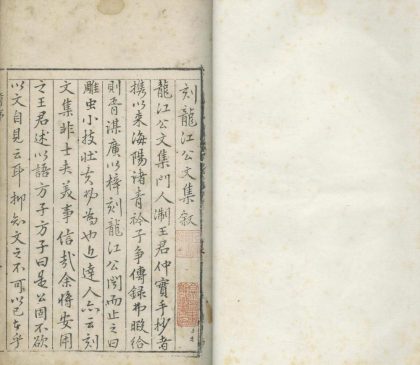 刻龍江公文集敘
龍江公文集門人淛王君仲實手抄者
携以來海陽諸青衿子爭傳録弗暇給
則胥謀廣以梓刻龍江公聞而止之曰
雕虫小技壯夫為也近達人亦云刻
文集非士夫義事信哉余將安用
之王君述以語方子方子曰是公固不欲
以文自見云耳抑知文之不可以已在乎